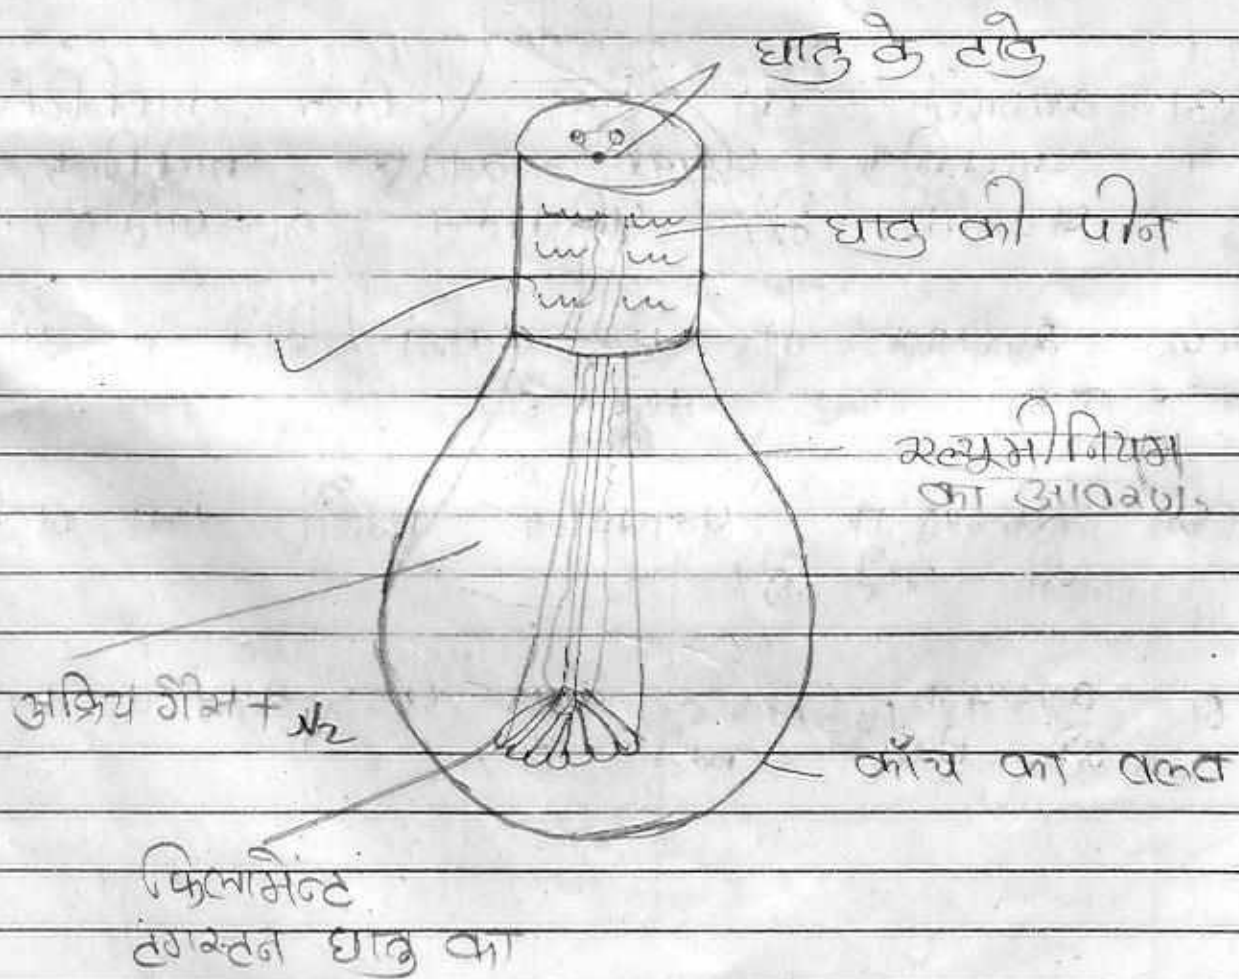 धातु के टाके
धातु की पीन
एल्यूमीनियम
का आवरण
अक्रिय गैस + N2
काँच का वल्व
फिलामेन्ट
टंगस्टन धातु का